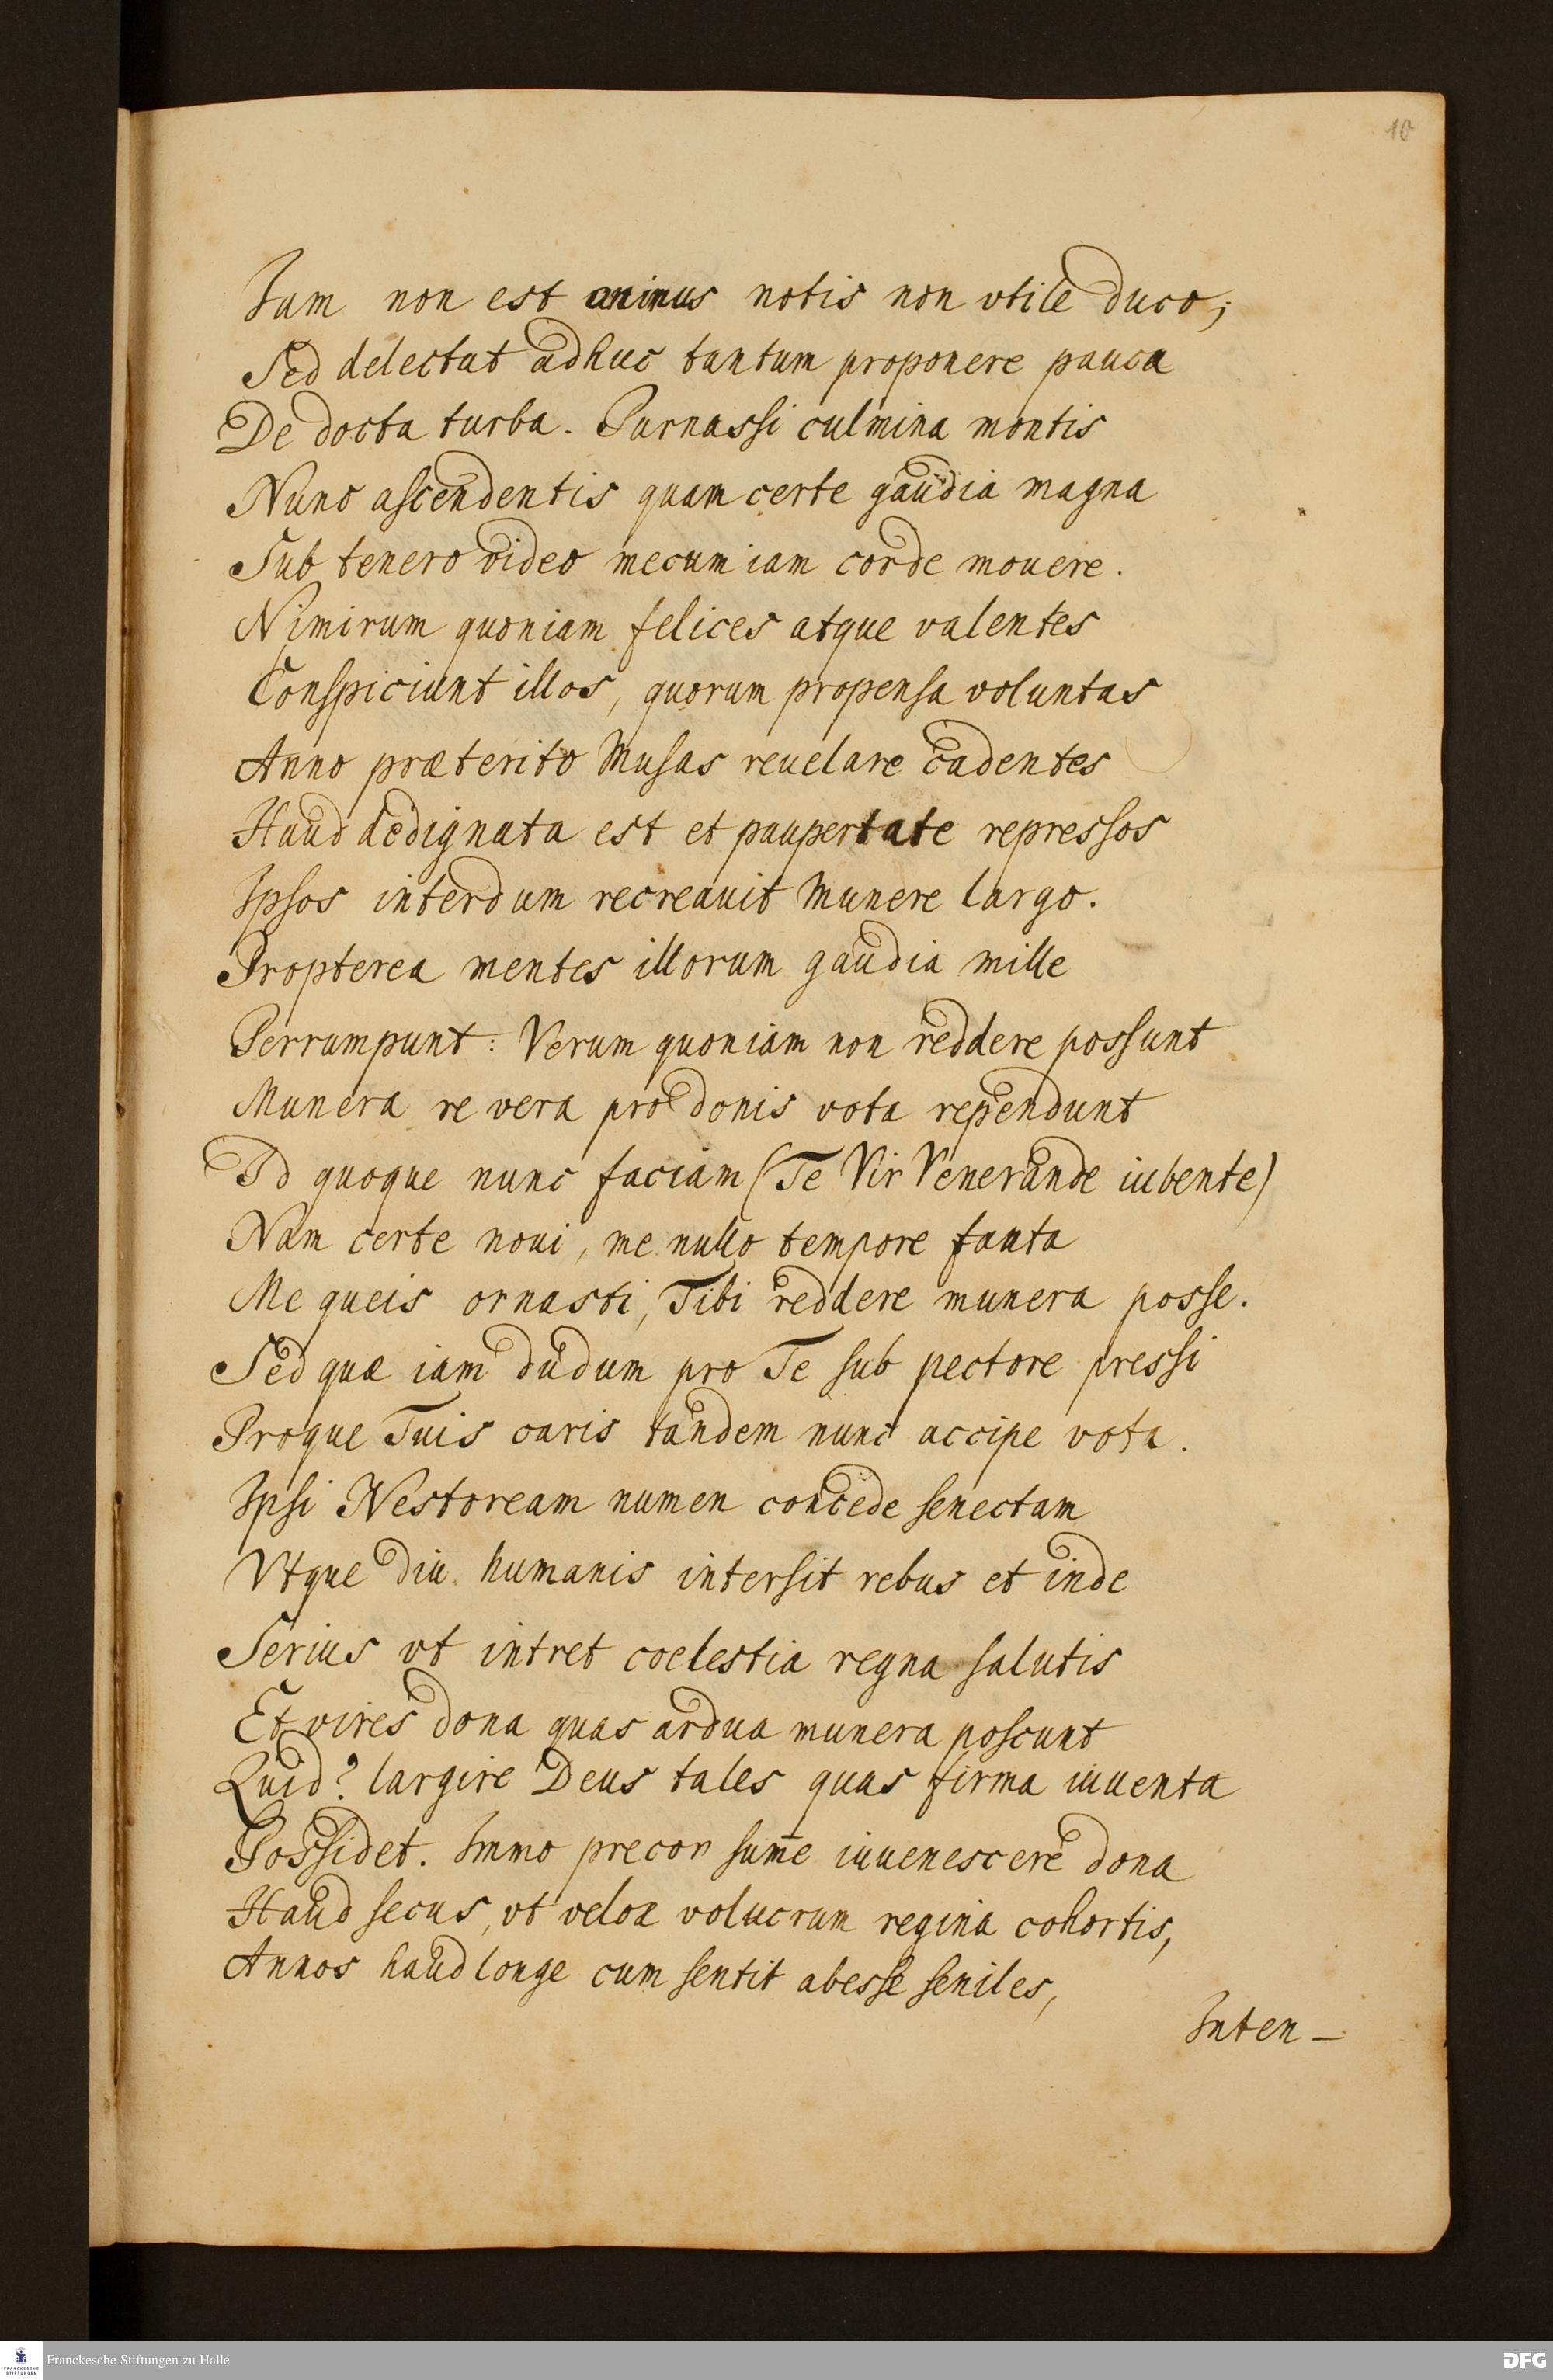 10
Iam non est animus notis non vtile duco;
Sed delectat adhuc tantum proponere pauca
De docta turba. Parnassi culmina montis
Nunc ascendentis quam certe gaudia magna
Sub tenero video mecum iam corde mouere.
Nimirum quoniam felices atque valentes
Conspiciunt illos, quorum propensa voluntas
Anno præterito Musas reuelare cadentes
Haud dedignata est et paupertate repressos
Ipsos interdum recreauit munere largo.
Propterea mentes illorum gaudia mille
Perrumpunt: Verum quoniam non reddere possunt
Munera re vera pro donis vota rependunt
Id quoque nunc faciam (Te Vir Venerande iubente)
Nam certe noui, me nullo tempore tanta
Me queis ornasti, Tibi reddere munera posse.
Sed quæ iam dudum pro Te sub pectore pressi
Proque Tuis caris tandem nunc accipe vota.
Ipsi Nestoream numen concede senectam
Vtque diu humanis intersit rebus et inde
Serius vt intret coelestia regna salutis
Et vires dona quas ardua munera poscunt
Quid? largire Deus tales quas firma iuuenta
Possidet. Immo precor sum̅e iuuenescere dona
Haud secus, vt velox volucrum regina cohortis,
Annos haud longe cum sentit abesse seniles,
Inten-
Franckesche Stiftungen zu Halle
FRANCKESCHE STIFTUNGEN
DFG